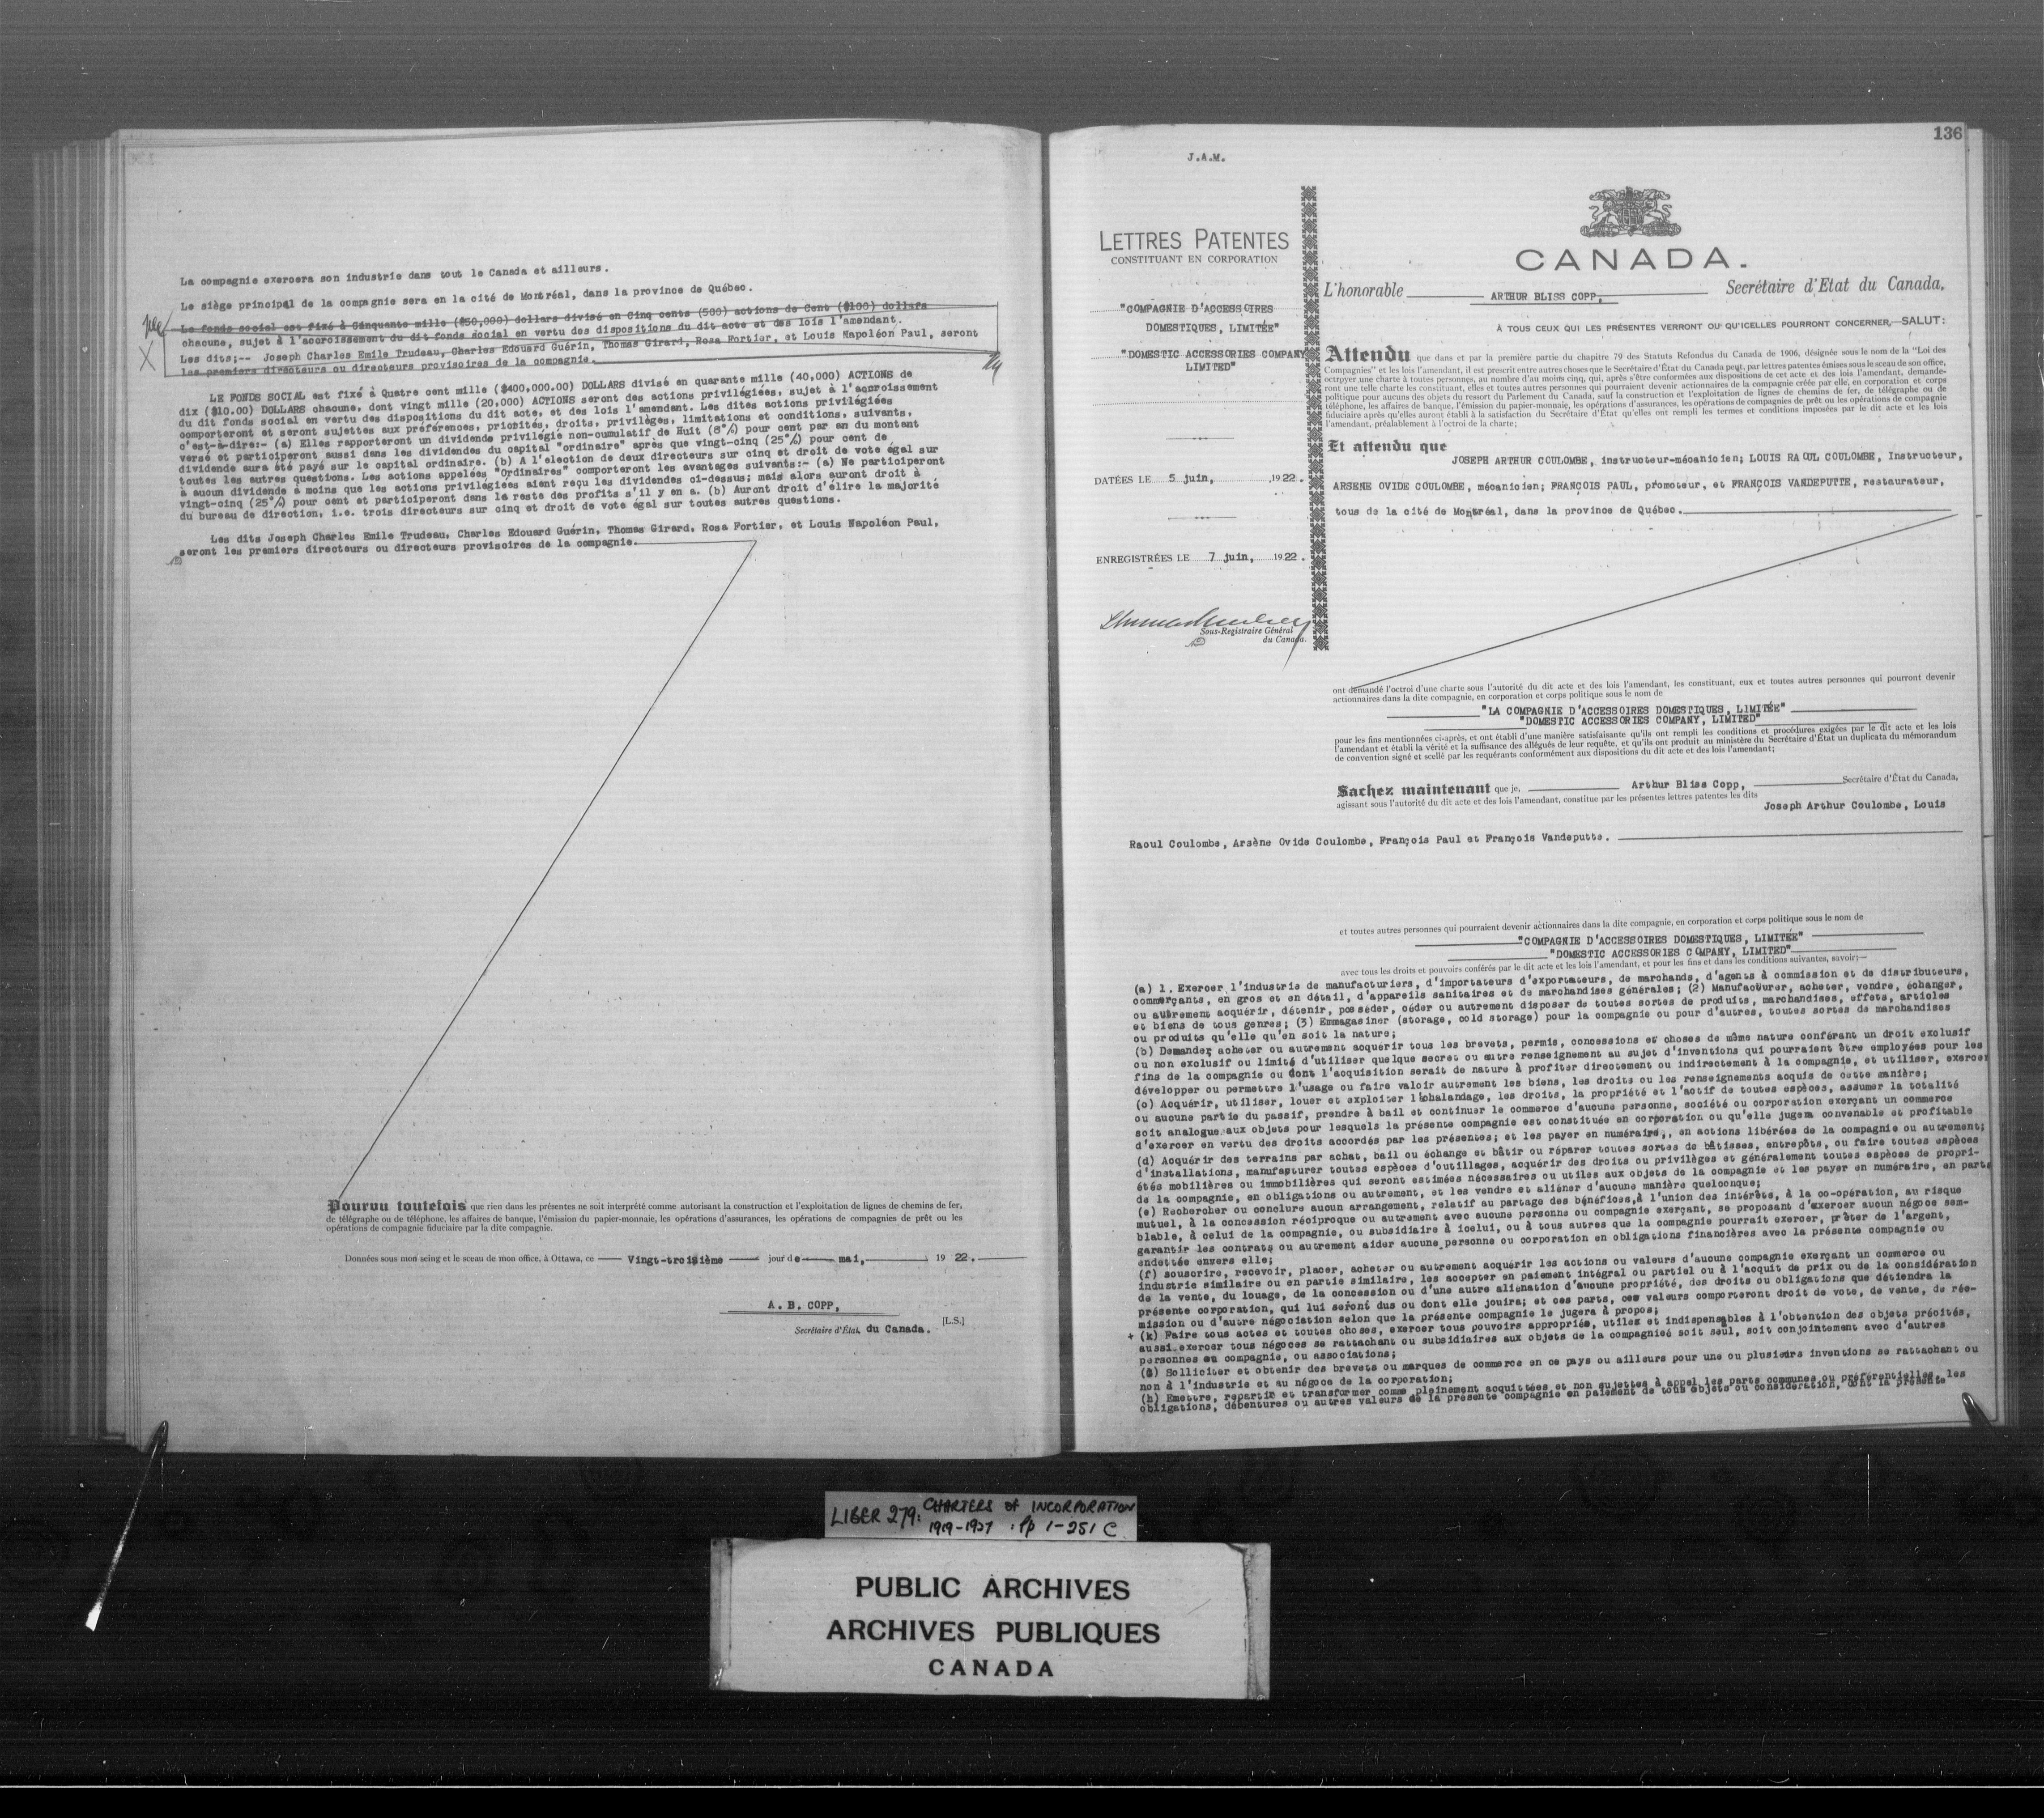 La compagnie exercera son industrie dans tout le Canada et ailleurs.
Le siège principal de la compagnie sera en la cité de Montréal, dans la province de Québec.
Le fonds social est fixé à Cinquante mille ($50,000) dollars divisé en Cinq cents (500) actions de Cent ($100) dollars
chacune, sujet à l'accroissement du dit fonds social en vertu des dispositions du dit acte et des lois l'amendant.
Les dits;-- Joseph Charles Emile Trudeau, Charles Edouard Guérin, Thomas Girard, Rosa Fortier, et Louis Napoléon Paul, seront
les premiers directeurs ou directeurs provisoires de la compagnie.
LE FONDS SOCIAL est fixé à Quatre cent mille ($400,000.00) DOLLARS divisé en quarante mille (40,000) ACTIONS de
dix ($10.00) DOLLARS chacune, dont vingt mille (20,000) ACTIONS seront des actions privilégiées, sujet à l'accroissement
du dit fonds social en vertu des dispositions du dit acte, et des lois l'amendant. Les dites actions privilégiées
comporteront et seront sujettes aux préférences, priorités, droits, privilèges, limitations et conditions, suivants,
c'est-à-dire:- (a) Elles rapporteront un dividende privilégié non-cumulatif de Huit (8%) pour cent par an du montant
versé et participeront aussi dans les dividendes du capital "ordinaire" après que vingt-cinq (25%) pour cent de
dividende aura été payé sur le capital ordinaire. (b) A l'election de deux directeurs sur cinq et droit de vote égal sur
toutes les autres questions. Les actions appelées "Ordinaires" comporteront les avantages suivants:- (a) Ne participeront
à aucun dividende à moins que les actions privilégiées aient reçu les dividendes ci-dessus; mais alors auront droit à
vingt-cinq (25%) pour cent et participeront dans le reste des profits s'il y en a. (b) Auront droit d'élire la majorité
du bureau de direction, i.e. trois directeurs sur cinq et droit de vote égal sur toutes autres questions.
Les dits Joseph Charles Emile Trudeau, Charles Edouard Guérin, Thomas Girard, Rosa Fortier, et Louis Napoléon Paul,
seront les premiers directeurs ou directeurs provisoires de la compagnie.
Pourvu toutefois que rien dans les présentes ne soit interprété comme autorisant la construction et l'exploitation de lignes de chemins de fer,
de télégraphe ou de téléphone, les affaires de banque, l'émission du papier-monnaie, les opérations d'assurances, les opérations de compagnies de prêt ou les
opérations de compagnie fiduciaire par la dite compagnie.
Données sous mon seing et le sceau de mon office, à Ottawa, ce Vingt-troisième jour de mai, 1922.
A. B. COPP,
Secrétaire d'État du Canada. [L.S.]
136
J.A.M.
LETTRES PATENTES
CONSTITUANT EN CORPORATION
"COMPAGNIE D'ACCESSOIRES
DOMESTIQUES, LIMITÉE"
"DOMESTIC ACCESSORIES COMPANY
LIMITED"
DATÉES LE 5 juin, 1922.
ENREGISTRÉES LE 7 juin, 1922.
Sous-Registraire Général
du Canada.
CANADA.
L'honorable ARTHUR BLISS COPP, Secrétaire d'Etat du Canada.
À TOUS CEUX QUI LES PRÉSENTES VERRONT OU QU'ICELLES POURRONT CONCERNER,—SALUT:
Attendu que dans et par la première partie du chapitre 79 des Statuts Refondus du Canada de 1906, désignée sous le nom de la "Loi des
Compagnies" et les lois l'amendant, il est prescrit entre autres choses que le Secrétaire d'État du Canada peut, par lettres patentes émises sous le sceau de son office,
octroyer une charte à toutes personnes, au nombre d'au moins cinq, qui, après s'être conformées aux dispositions de cet acte et des lois l'amendant, demande-
ront une telle charte les constituant, elles et toutes autres personnes qui pourraient devenir actionnaires de la compagnie créée par elle, en corporation et corps
politique pour aucuns des objets du ressort du Parlement du Canada, sauf la construction et l'exploitation de lignes de chemins de fer, de télégraphe ou de
téléphone, les affaires de banque, l'émission du papier-monnaie, les opérations d'assurances, les opérations de compagnies de prêt ou les opérations de compagnie
fiduciaire après qu'elles auront établi à la satisfaction du Secrétaire d'État qu'elles ont rempli les termes et conditions imposées par le dit acte et les lois
l'amendant, préalablement à l'octroi de la charte;
Et attendu que
JOSEPH ARTHUR COULOMBE, instructeur-mécanicien; LOUIS RAOUL COULOMBE, Instructeur,
ARSENE OVIDE COULOMBE, mécanicien; FRANÇOIS PAUL, promoteur, et FRANÇOIS VANDEPUTTE, restaurateur,
tous de la cité de Montréal, dans la province de Québec.
ont demandé l'octroi d'une charte sous l'autorité du dit acte et des lois l'amendant, les constituant, eux et toutes autres personnes qui pourront devenir
actionnaires dans la dite compagnie, en corporation et corps politique sous le nom de
"LA COMPAGNIE D'ACCESSOIRES DOMESTIQUES, LIMITÉE"
"DOMESTIC ACCESSORIES COMPANY, LIMITED"
pour les fins mentionnées ci-après, et ont établi d'une manière satisfaisante qu'ils ont rempli les conditions et procédures exigées par le dit acte et les lois
l'amendant et établi la vérité et la suffisance des allégués de leur requête, et qu'ils ont produit au ministère du Secrétaire d'État un duplicata du mémorandum
de convention signé et scellé par les requérants conformément aux dispositions du dit acte et des lois l'amendant;
Sachez maintenant que je, Arthur Bliss Copp, Secrétaire d'État du Canada,
agissant sous l'autorité du dit acte et des lois l'amendant, constitue par les présentes lettres patentes les dits
Joseph Arthur Coulombe, Louis
Raoul Coulombe, Arsène Ovide Coulombe, François Paul et François Vandeputte.
et toutes autres personnes qui pourraient devenir actionnaires dans la dite compagnie, en corporation et corps politique sous le nom de
"COMPAGNIE D'ACCESSOIRES DOMESTIQUES, LIMITÉE"
"DOMESTIC ACCESSORIES COMPANY, LIMITED"
avec tous les droits et pouvoirs conférés par le dit acte et les lois l'amendant, et pour les fins et dans les conditions suivantes, savoir:—
(a) 1. Exercer l'industrie de manufacturiers, d'importateurs d'exportateurs, de marchands, d'agents à commission et de distributeurs,
commerçants, en gros et en détail, d'appareils sanitaires et de marchandises générales; (2) Manufacturer, acheter, vendre, échanger,
ou autrement acquérir, détenir, posséder, céder ou autrement disposer de toutes sortes de produits, marchandises, effets, articles
et biens de tous genres; (3) Emmagasiner (storage, cold storage) pour la compagnie ou pour d'autres, toutes sortes de marchandises
ou produits qu'elle qu'en soit la nature;
(b) Demander acheter ou autrement acquérir tous les brevets, permis, concessions et choses de même nature conférant un droit exclusif
ou non exclusif ou limité d'utiliser quelque secret ou autre renseignement au sujet d'inventions qui pourraient être employées pour les
fins de la compagnie ou dont l'acquisition serait de nature à profiter directement ou indirectement à la compagnie, et utiliser, exercer
développer ou permettre l'usage ou faire valoir autrement les biens, les droits ou les renseignements acquis de cette manière;
(c) Acquérir, utiliser, louer et exploiter l'achalandage, les droits, la propriété et l'actif de toutes espèces, assumer la totalité
ou aucune partie du passif, prendre à bail et continuer le commerce d'aucune personne, société ou corporation exerçant un commerce
soit analogue aux objets pour lesquels la présente compagnie est constituée en corporation ou qu'elle jugera convenable et profitable
d'exercer en vertu des droits accordés par les présentes; et les payer en numéraire, en actions libérées de la compagnie ou autrement;
(d) Acquérir des terrains par achat, bail ou échange et bâtir ou réparer toutes sortes de bâtisses, entrepôts, ou faire toutes espèces
d'installations, manufacturer toutes espèces d'outillages, acquérir des droits ou privilèges et généralement toutes espèces de propri-
étés mobilières ou immobilières qui seront estimées nécessaires ou utiles aux objets de la compagnie et les payer en numéraire, en parts
de la compagnie, en obligations ou autrement, et les vendre et aliéner d'aucune manière quelconque;
(e) Rechercher ou conclure aucun arrangement, relatif au partage des bénéfices, à l'union des intérêts, à la co-opération, au risque
mutuel, à la concession réciproque ou autrement avec aucune personne ou compagnie exerçant, se proposant d'exercer aucun négoce sem-
blable, à celui de la compagnie, ou subsidiaire à icelui, ou à tous autres que la compagnie pourrait exercer, prêter de l'argent,
garantir les contrats ou autrement aider aucune personne ou corporation en obligations financières avec la présente compagnie ou
endettée envers elle;
(f) souscrire, recevoir, placer, acheter ou autrement acquérir les actions ou valeurs d'aucune compagnie exerçant un commerce ou
industrie similaire ou en partie similaire, les accepter en paiement intégral ou partiel ou à l'acquit de prix ou de la considération
de la vente, du louage, de la concession ou d'une autre aliénation d'aucune propriété, des droits ou obligations que détiendra la
présente corporation, qui lui seront dus ou dont elle jouira; et ces parts, ces valeurs comporteront droit de vote, de vente, de rée-
mission ou d'autre négociation selon que la présente compagnie le jugera à propos;
+ (k) Faire tous actes et toutes choses, exercer tous pouvoirs appropriés, utiles et indispensables à l'obtention des objets précités,
aussi exercer tous négoces se rattachant ou subsidiaires aux objets de la compagnieé soit seul, soit conjointement avec d'autres
personnes ou compagnie, ou associations;
(g) Solliciter et obtenir des brevets ou marques de commerce en ce pays ou ailleurs pour une ou plusieurs inventions se rattachant ou
non à l'industrie et au négoce de la corporation;
(h) Emettre, repartir et transformer comme pleinement acquittées et non sujettes à appel les parts communes ou préférentielles les
obligations, débentures ou autres valeurs de la présente compagnie en paiement de tous objets ou considération, dont la présente
LIBER 279: CHARTERS of INCORPORATION
1919-1927 : Pp 1-251 C
PUBLIC ARCHIVES
ARCHIVES PUBLIQUES
CANADA